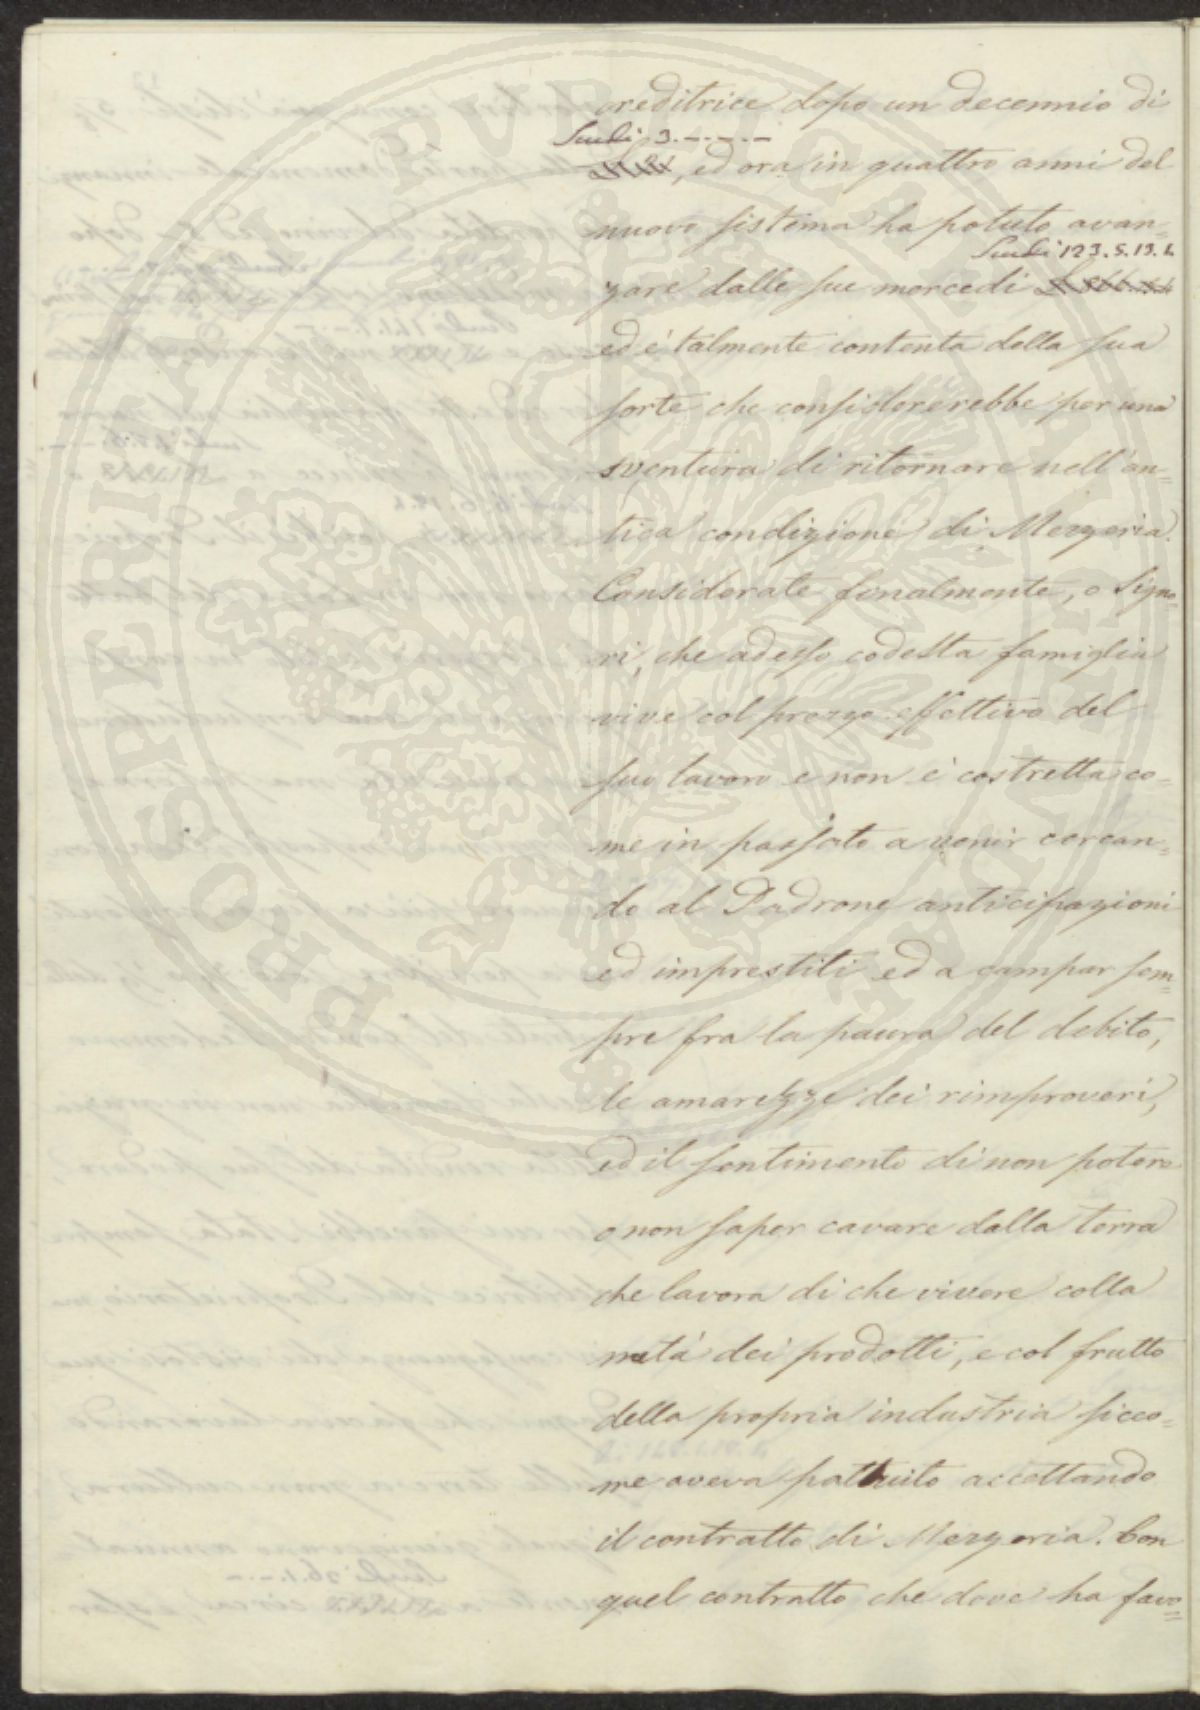 creditrice dopo un decennio di
Scudi 3.-.-.-
, ed ora in quattro anni del
nuovo sistema ha potuto avan=
Scudi 123.5.13.4
zare dalle sue mercedi
ed è talmente contenta della sua
sorte che considererebbe per una
sventura di ritornare nell'an=
tica condizione di Mezzeria.
Considerate finalmente, o Signo=
ri, che adesso codesta famiglia
vive col prezzo effettivo del
suo lavoro e non è costretta co=
me in passato a venir cercan=
do al Padrone anticipazioni
ed imprestiti ed a campar sem=
pre fra la paura del debito,
le amarezze dei rimproveri,
ed il sentimento di non potere
o non saper cavare dalla terra
che lavora di che vivere colla
metà dei prodotti, e col frutto
della propria industria sicco=
me aveva pattuito accettando
il contratto di Mezzeria. Con
quel contratto che dove ha favo=
PROSPERITATI PUBLICAE AUGENDAE